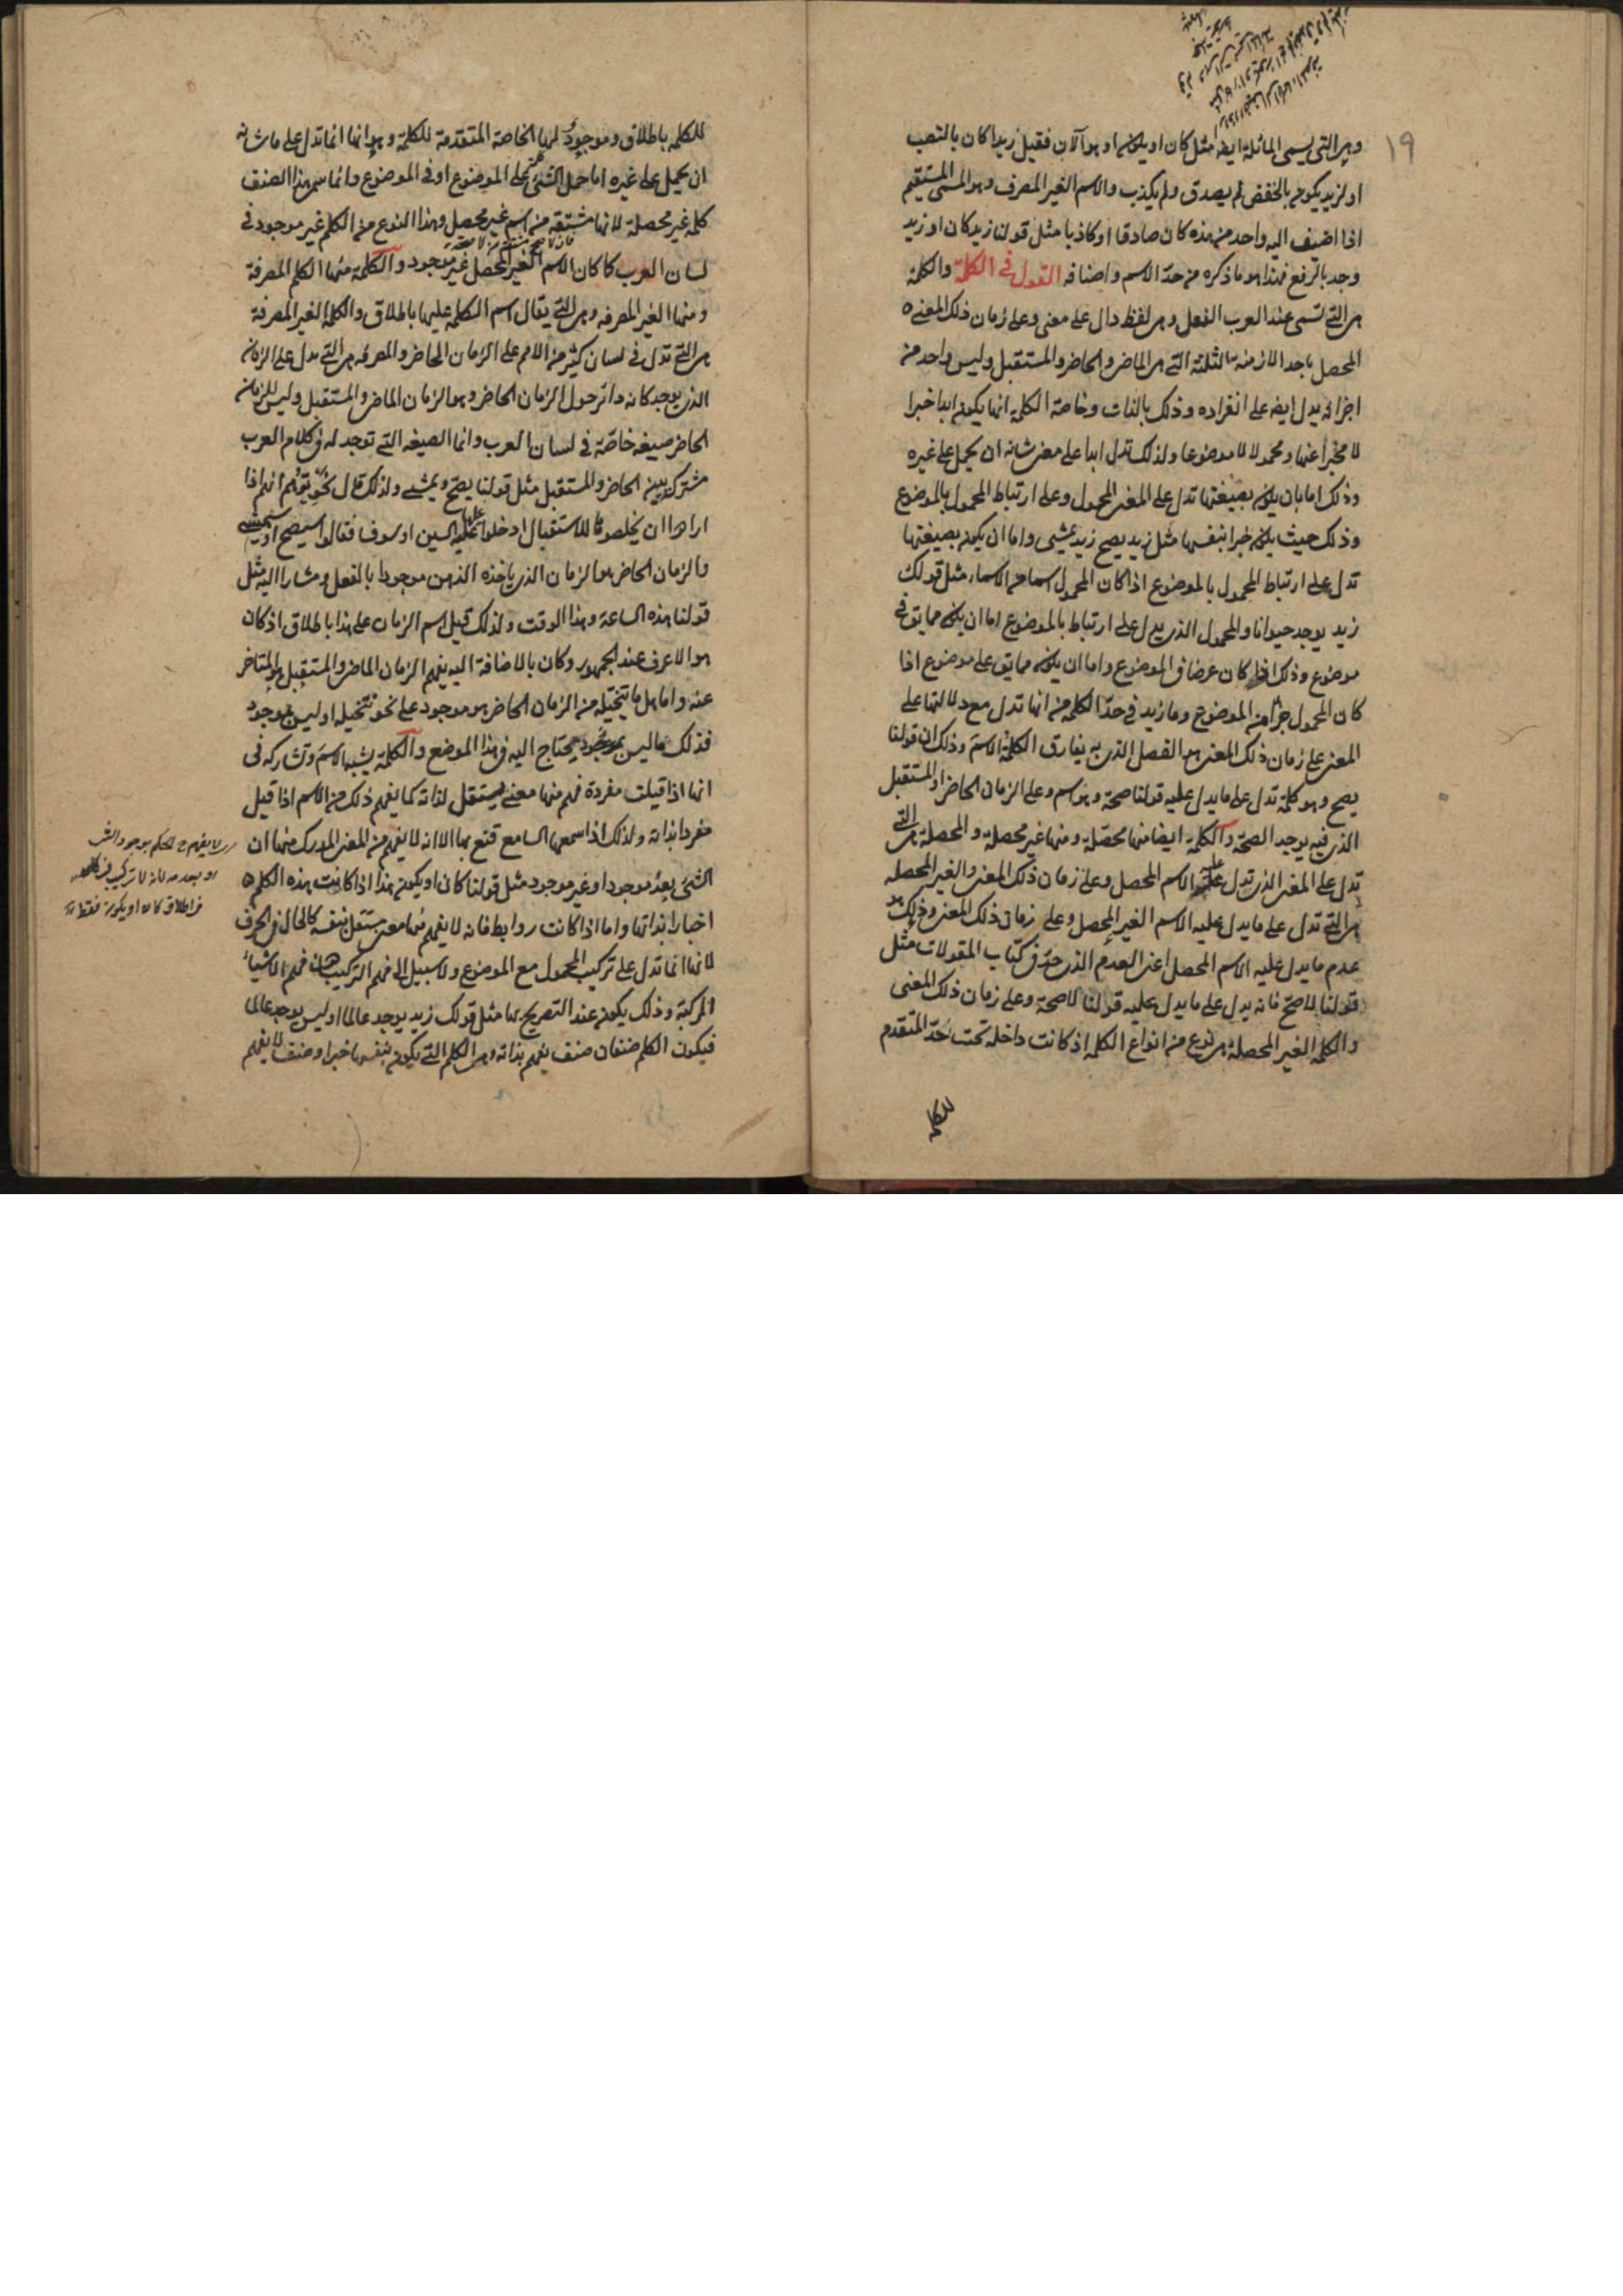 ١٩
وهي التي يسمى المائلة ايضا مثل كان او يكون او هو الآن فقيل زيدا كان بالنصب
او لزيد يكون بالخفض لم يصدق ولم يكذب والاسم الغير المصرف وهو المسمى المستقيم
اذا اضيف اليه واحد من هذه كان صادقا او كاذبا مثل قولنا زيد كان او زيد
وجد بالرفع فهذا هو ما ذكره من حدّ الاسم واصنافه القول في الكلمة والكلمة
هي التي تسمى عند العرب الفعل وهي لفظ دال على معنى وعلى زمان ذلك المعنى
المحصل باحد الازمنة الثلثة التي هي الماضي والحاضر والمستقبل وليس واحد من
اجزائه يدل ايضا على انفراده وذلك بالذات وخاصة الكلمة انها يكون ابدا خبرا
لا مخبرا عنها ومحمولا لا موضوعا ولذلك تدل ابدا على معنى شانه ان يحمل على غيره
وذلك اما بان يكون بصيغتها تدل على المعنى المحمول وعلى ارتباط المحمول بالموضوع
وذلك حيث يكون خبرا بنفسها مثل زيد يصح زيد يمشي واما ان يكون بصيغتها
تدل على ارتباط المحمول بالموضوع اذا كان المحمول اسما من الاسماء مثل قولك
زيد يوجد حيوانا والمحمول الذي يدل على ارتباط بالموضوع اما ان يكون مما يق في
موضوع وذلك اذا كان عرضا في الموضوع واما ان يكون مما يق على موضوع اذا
كان المحمول جزأ من الموضوع وما زيد في حدّ الكلمة من انها تدل مع دلالتها على
المعنى على زمان ذلك المعنى هو الفصل الذي به يفارق الكلمة الاسم وذلك ان قولنا
يصح وهو كلمة تدل على ما يدل عليه قولنا صحة وهو اسم وعلى الزمان الحاضر او المستقبل
الذي فيه يوجد الصحة والكلمة ايضا منها محصّلة ومنها غير محصلة والمحصلة هي التي
تدل على المعنى الذي تدل عليه الاسم المحصل وعلى زمان ذلك المعنى والغير المحصله
هي التي تدل على ما يدل عليه الاسم الغير المحصل وعلى زمان ذلك المعنى وذلك هو
عدم ما يدل عليه الاسم المحصل اعنى العدم الذي حدّ في كتاب المقولات مثل
قولنا لا صحّ فانه يدل على ما يدل عليه قولنا لا صحة وعلى زمان ذلك المعنى
والكلمة الغير المحصلة هي نوع من انواع الكلمة اذ كانت داخلة تحت حدّ المتقدم
للكلمه
للكلمه باطلاق وموجود لها الخاصة المتقدمة للكلمة وهو انها انما تدل على ما شانه
ان يحمل على غيره اما حمل الشئ على الموضوع او في الموضوع وانما سمى هذا الصنف
كلمة غير محصلة لانها مشتقة من اسم غير محصل وهذا النوع من الكلم غير موجود في
لسان العرب كما كان الاسم الغير المحصل غير موجود والكلمة منها الكلم المصرفة
ومنها الغير المصرفه وهي التي يقال اسم الكلمه عليها باطلاق والكلمة الغير المصرفة
هي التي تدل في لسان كثير من الامم على الزمان الحاضر والمصرفه هي التي تدل على الزمان
الذي يوجد كانه دائر حول الزمان الحاضر وهو الزمان الماضي والمستقبل وليس للزمان
الحاضر صيغة خاصّة في لسان العرب وانما الصيغه التي توجد له في كلام العرب
مشتركة بين الحاضر والمستقبل مثل قولنا يصحّ ويمشى ولذلك قال نحويّوهم انهم اذا
ارادوا ان يخلصوها للاستقبال ادخلوا عليها السين او سوف فقالوا سيصح او سيمشى
والزمان الحاضر هو الزمان الذي ياخذه الذهن موجودا بالفعل ومشارا اليه مثل
قولنا هذه الساعة وهذا الوقت ولذلك قيل اسم الزمان على هذا باطلاق اذ كان
هو الاعرف عند الجمهور وكان بالاضافة اليه يفهم الزمان الماضي والمستقبل والمتاخر
عنه واما هل ما يتخيله من الزمان الحاضر هو موجود على نحو تتخيله او ليس بموجود
فذلك ما ليس يحتاج اليه في هذا الموضع والكلمة يشبه الاسم وتشاركه في
انها اذا قيلت مفردة فهم منها معنى مستقل لذاته كما يفهم ذلك من الاسم اذا قيل
مفردا بذاته ولذلك اذا سمعها السامع قنع بها الا انه لا يفهم من المعنى المدرك منها ان
الشئ بعدُ موجود او غير موجود مثل قولنا كان او يكون هذا اذا كانت هذه الكلم
اخبارا بذاتها واما اذا كانت روابط فانه لا يفهم منها معنى مستقل بنفسه كالحال في الحرف
لانها انما تدل على تركيب المحمول مع الموضوع ولا سبيل الى فهم التركيب دون فهم الاشياء
المركبة وذلك يكون عند التصريح بها مثل قولك زيد يوجد عالما او ليس يوجد عالما
فيكون الكلم صنفان صنف يفهم بذاته وهي الكلم التي يكون بنفسها خبرا وصنف لا يفهم
لا يفهم الحكم بوجود الشئ
او بعدمه لانه لا تركيب في
اطلاق كان او يكون فقط